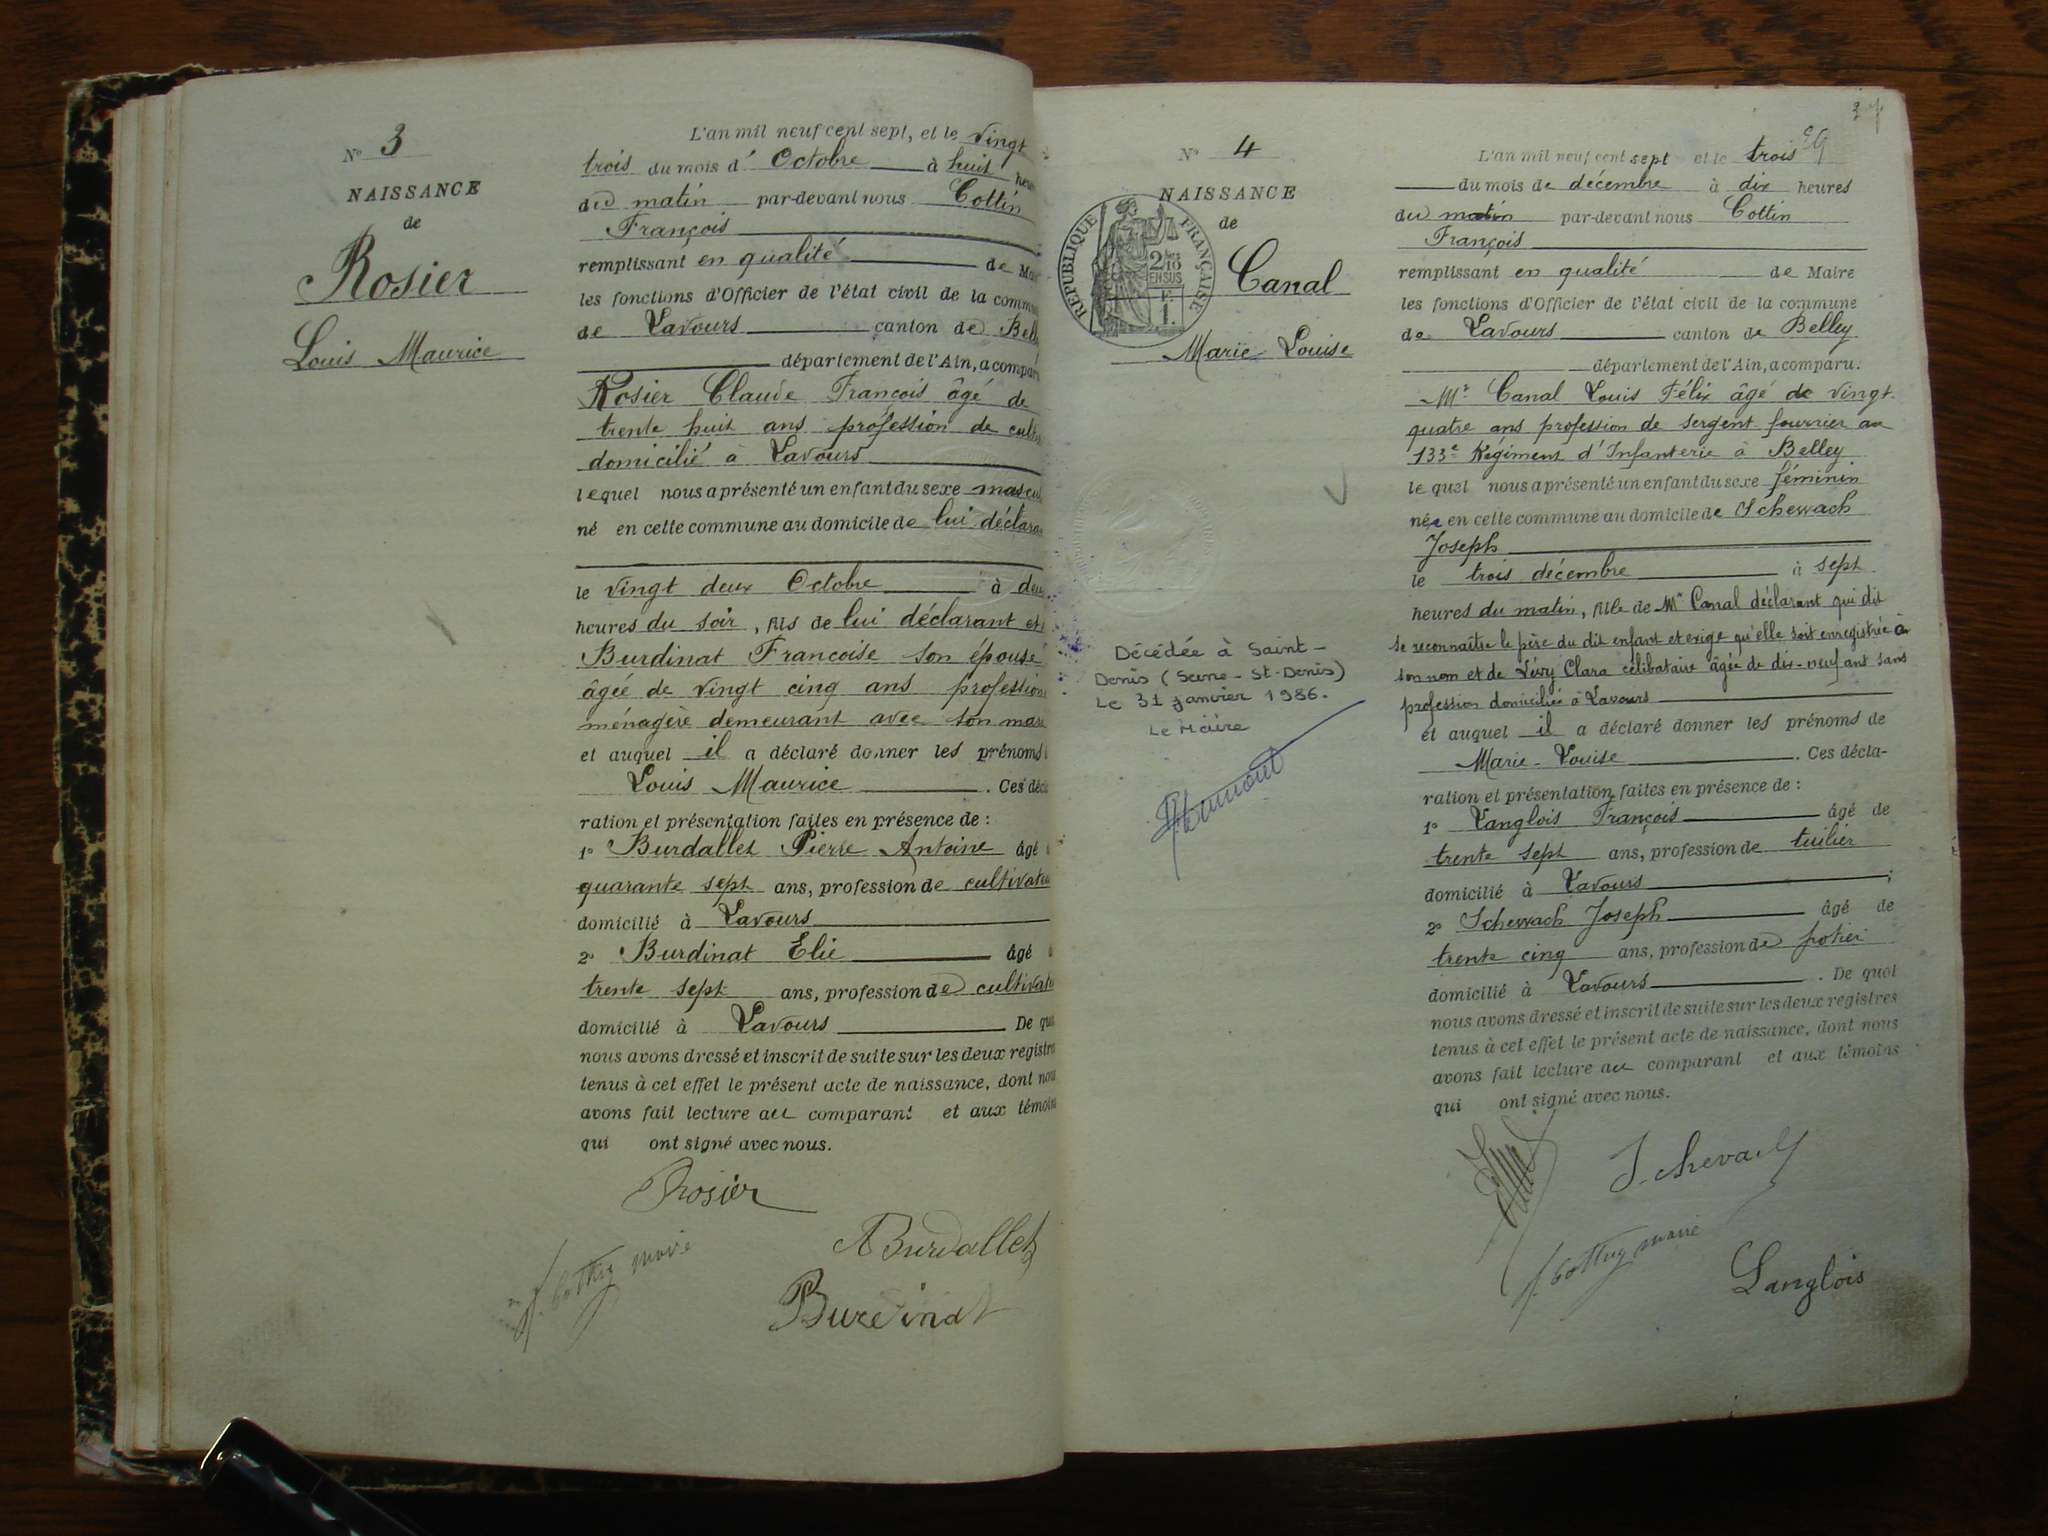 N° 3
NAISSANCE
de
Rosier
Louis Maurice
L'an mil neuf cent sept, et le vingt
trois du mois d' Octobre à huit heu
du matin par-devant nous Cottin
François
remplissant en qualité de Mai
les fonctions d'Officier de l'état civil de la commu
de Lavours canton de Bell
département de l'Ain, a comparu
Rosier Claude François âgé de
trente huit ans profession de cultiv
domicilié à Lavours
lequel nous a présenté un enfant du sexe mascul
né en cette commune au domicile de lui déclara
le vingt deux Octobre à deux
heures du soir, fils de lui déclarant et
Burdinat Francoise son épouse
âgée de vingt cinq ans profession
ménagère demeurant avec son mari
et auquel il a déclaré donner les prénoms
Louis Maurice. Ces décla
ration et présentation faites en présence de :
1° Burdallet Pierre Antoine âgé
quarante sept ans, profession de cultivateu
domicilié à Lavours
2° Burdinat Elie âgé
trente sept ans, profession de cultivate
domicilié à Lavours De quo
nous avons dressé et inscrit de suite sur les deux registre
tenus à cet effet le présent acte de naissance, dont nou
avons fait lecture au comparant et aux témoins
qui ont signé avec nous.
Rosier
ABurdallet
maire
Burdinat
37
N° 4
NAISSANCE
de
RÉPUBLIQUE FRANÇAISE
2/10 EN SUS
F. 1.
Canal
Marie-Louise
Décédée à Saint-
Denis (Seine-St-Denis)
Le 31 janvier 1986.
Le Maire
L'an mil neuf cent sept et le trois
du mois de décembre à dix heures
du matin par-devant nous Cottin
François
remplissant en qualité de Maire
les fonctions d'Officier de l'état civil de la commune
de Lavours canton de Belley
département de l'Ain, a comparu.
Mr Canal Louis Félix âgé de vingt-
quatre ans profession de sergent fourrier au
133e Régiment d'Infanterie à Belley
lequel nous a présenté un enfant du sexe féminin
née en cette commune au domicile de Schewach
Joseph
le trois décembre à sept
heures du matin, fille de Mr Canal déclarant qui dit
se reconnaître le père du dit enfant et exige qu'elle soit enregistrée à
son nom et de Lévy Clara célibataire âgée de dix-neuf ant sans
profession domiciliée à Lavours
et auquel il a déclaré donner les prénoms de
Marie-Louise. Ces décla-
ration et présentation faites en présence de :
1° Langlois François âgé de
trente sept ans, profession de tuilier
domicilié à Lavours ;
2° Schewach Joseph âgé de
trente cinq ans, profession de potier
domicilié à Lavours. De quoi
nous avons dressé et inscrit de suite sur les deux registres
tenus à cet effet le présent acte de naissance, dont nous
avons fait lecture au comparant et aux témoins
qui ont signé avec nous.
maire
Langlois